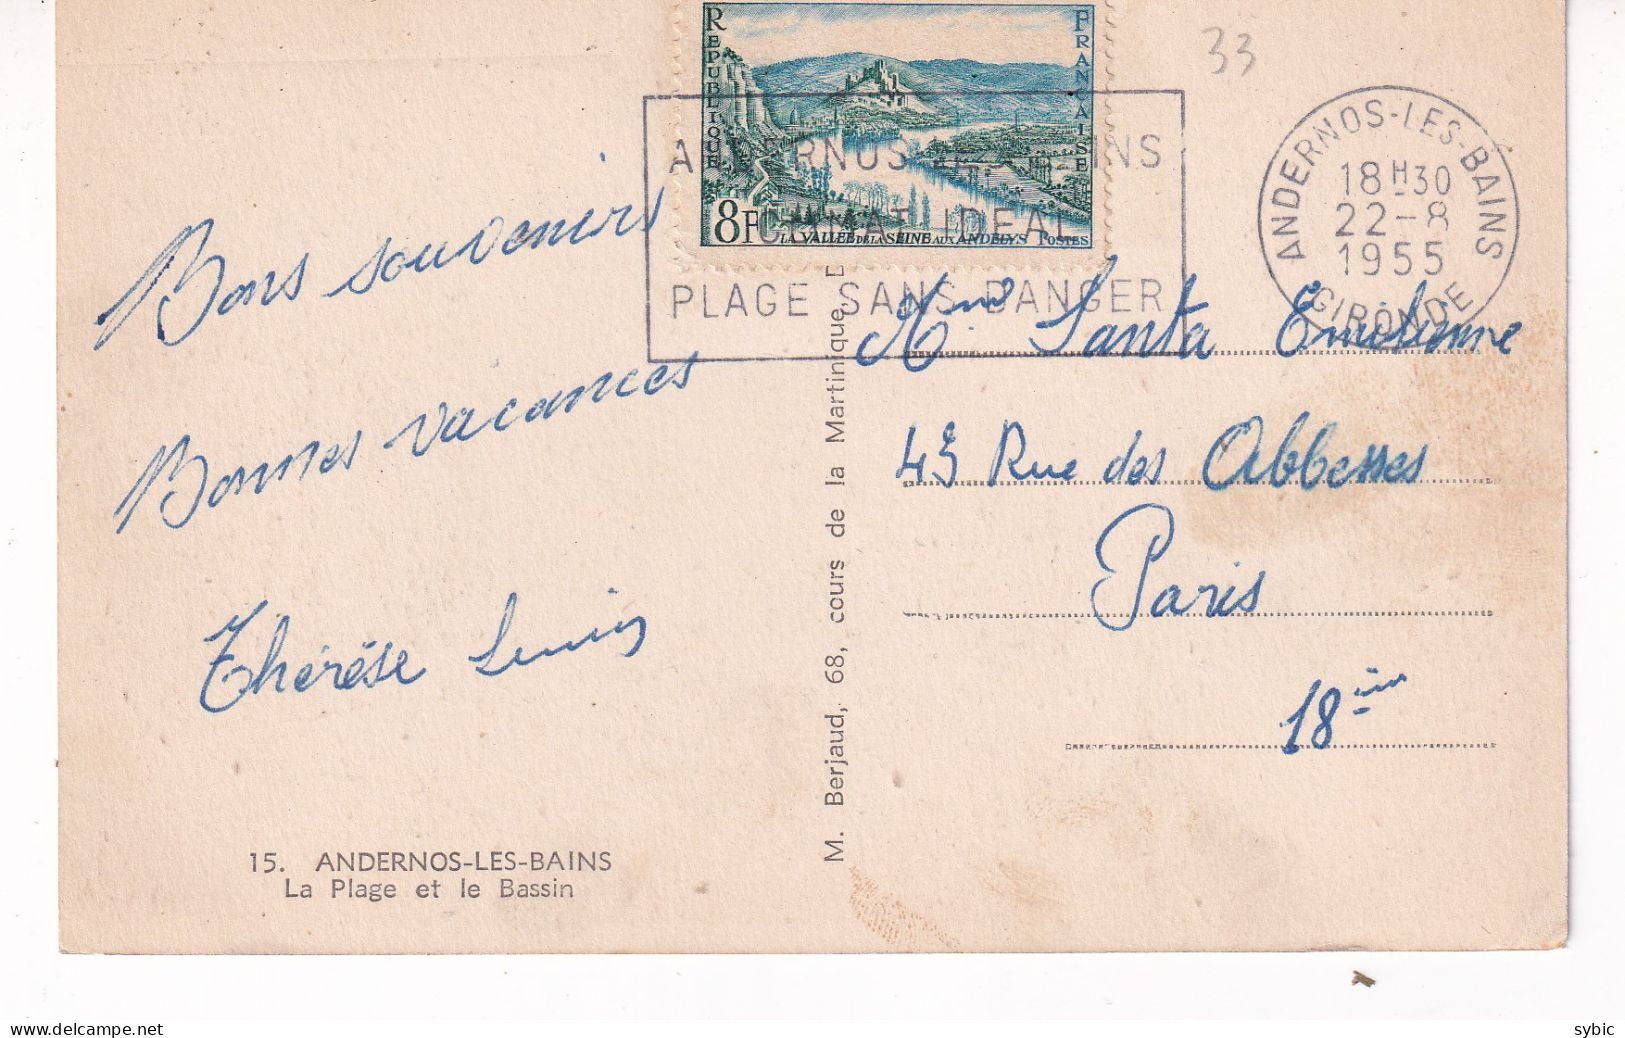 33
RÉPUBLIQUE FRANÇAISE
8F
LA VALLÉE DE LA SEINE AUX ANDELYS POSTES
CLIMAT IDEAL
PLAGE SANS DANGER
ANDERNOS-LES-BAINS
18H30
22-8
1955
GIRONDE
Bons souvenirs
Bonnes vacances
Thérése
Mme Santa Emilienne
45 Rue des Abbesses
Paris
18ème
M. Berjaud, 68, cours de la Martinique,
15. ANDERNOS-LES-BAINS
La Plage et le Bassin
delcampe.net
sybic